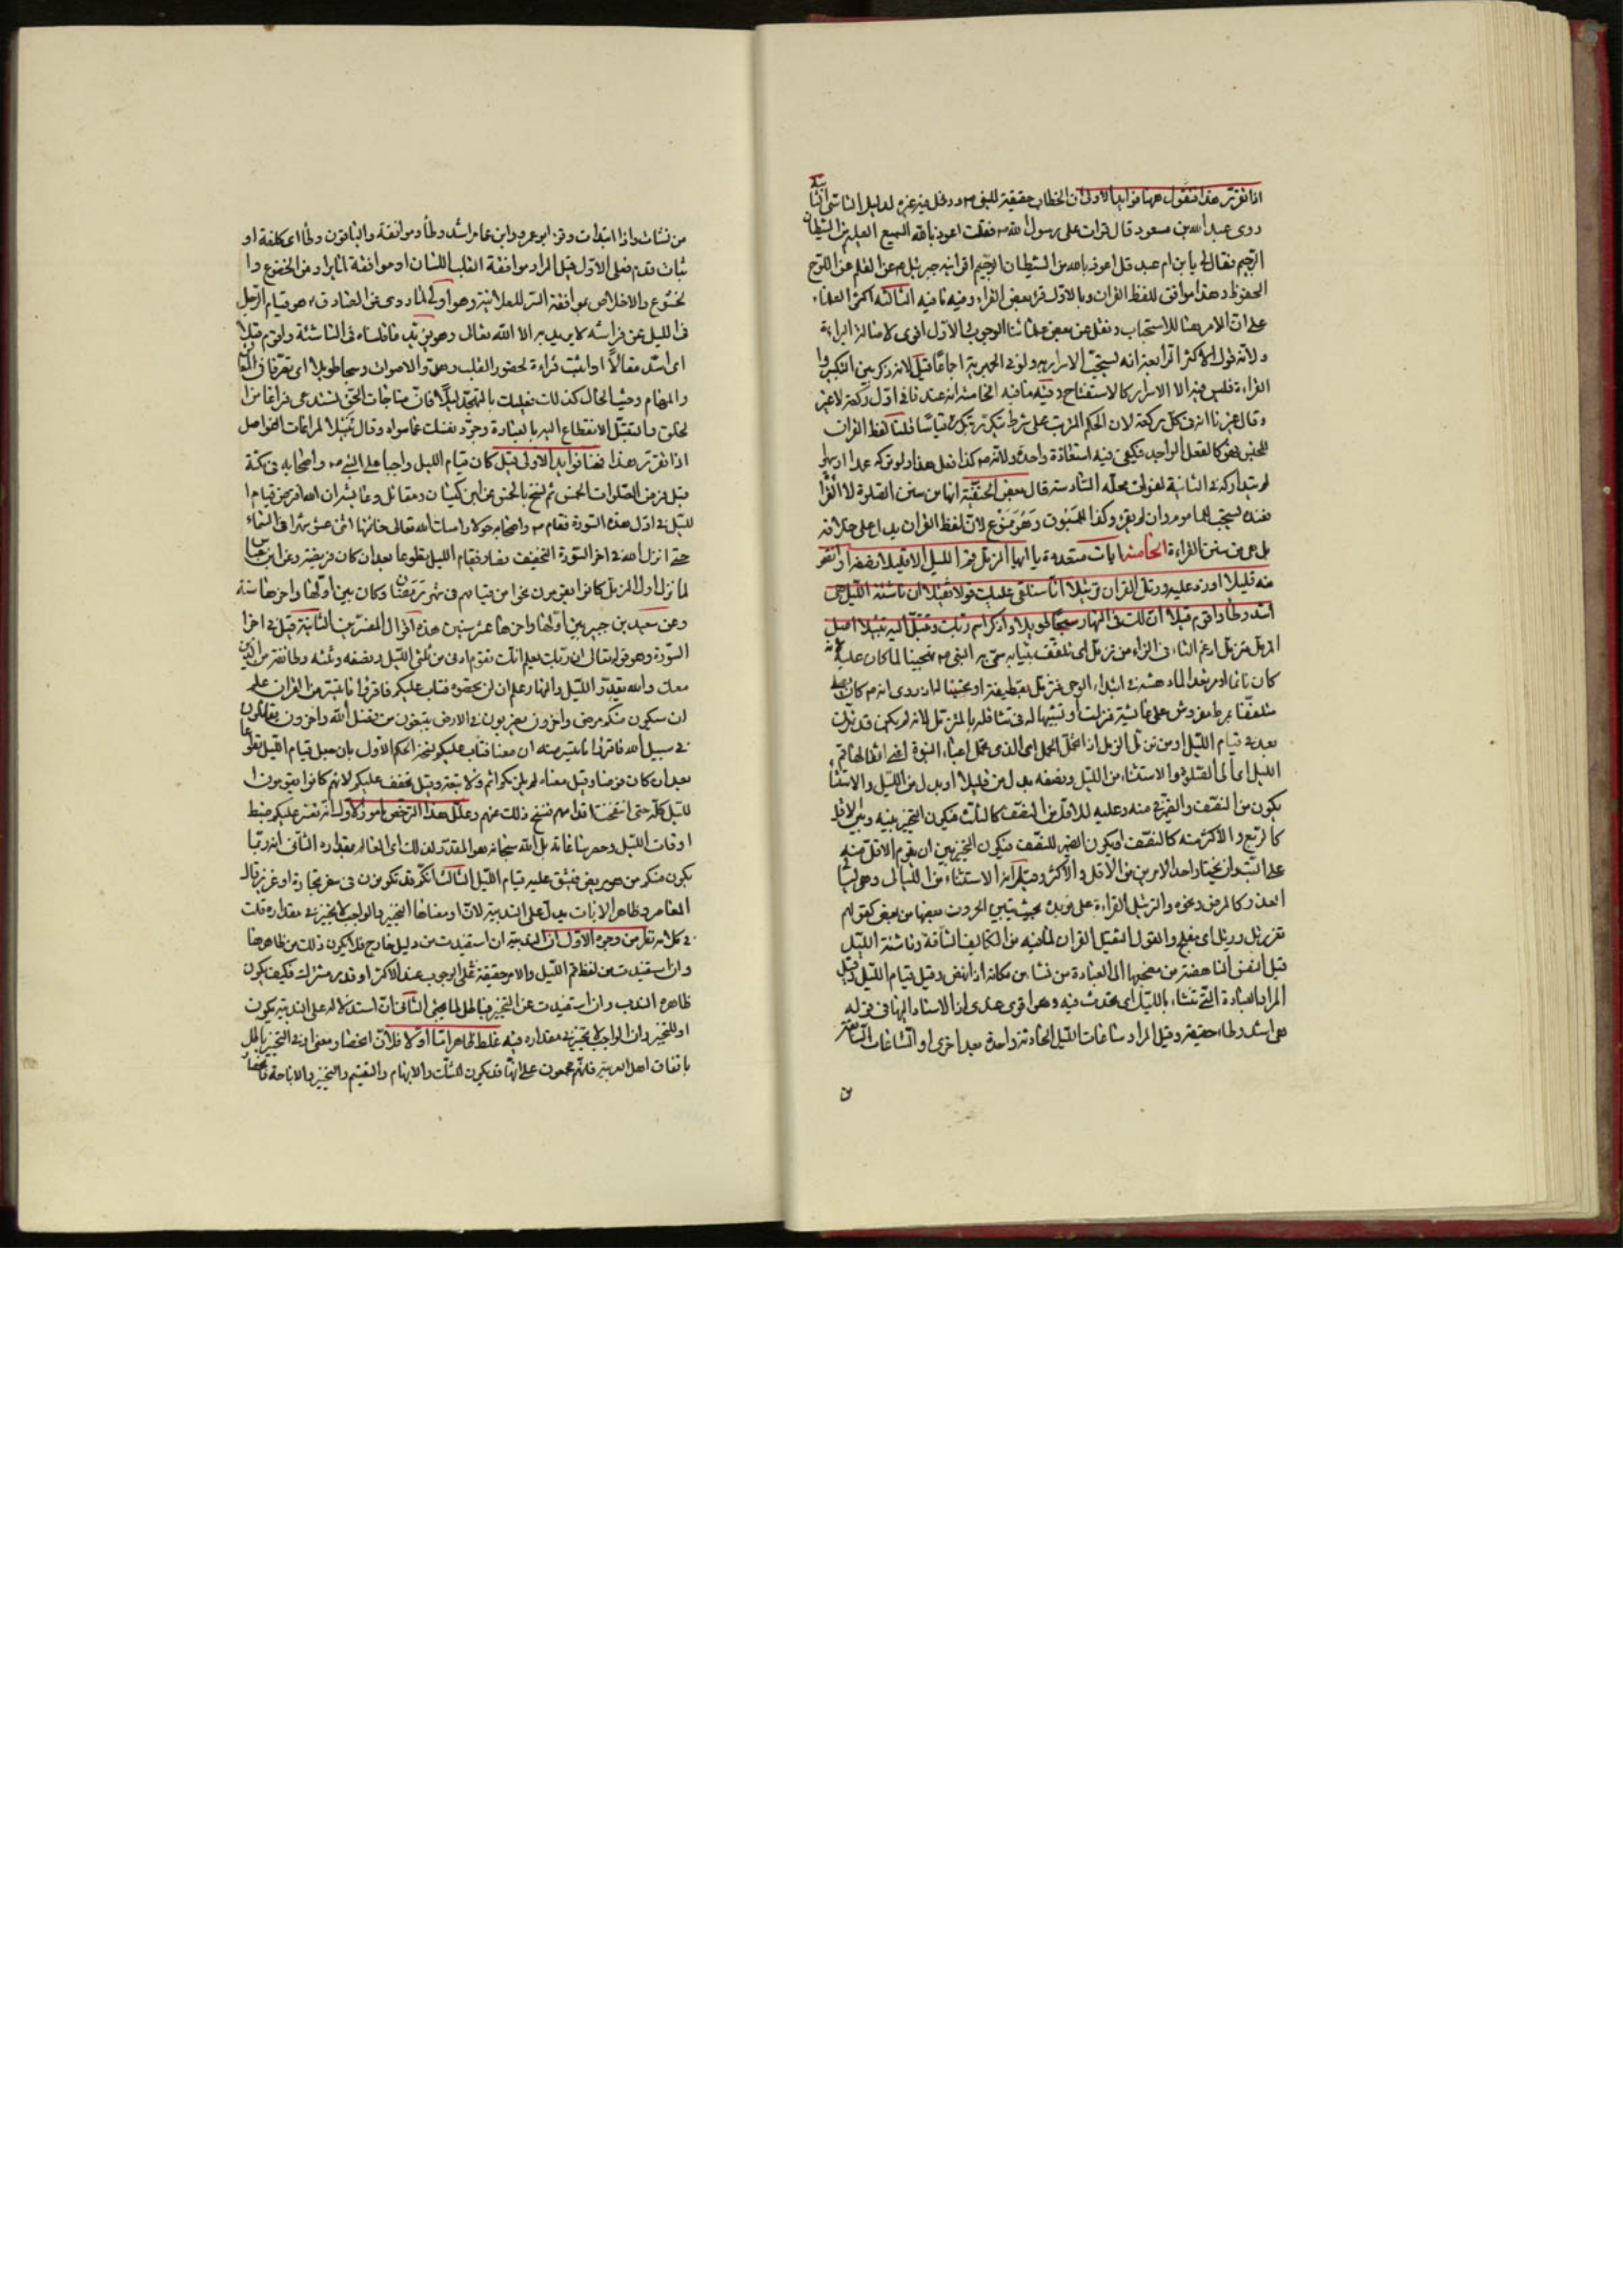 اذا تقرر هذا فنقول ههنا فوائد الاولى ان الخطاب حقيقة للنبى ص ودخل فيه غيره لدليل التاسى الثانية
روى عبد الله بن مسعود قال قرات على رسول الله ص فقلت اعوذ بالله السميع العليم من الشيطان
الرجيم فقال لى يا بن ام عبد قل اعوذ بالله من الشيطان الرجيم اقرانيه جبرئيل عن القلم عن اللوح
المحفوظ وهذا موافق للفظ القران وبالاول قرء بعض القراء وفيه ما فيه الثالثة اكثر العلماء
على ان الامر هنا للاستحباب ونقل عن بعض علمائنا الوجوب والاول اقوى لاصالة البراءة
ولانه قول الاكثر الرابعة انه يستحب الاسرار به ولو فى الجهرية اجماعا قيل لانه ذكر بين التكبير وا
القراءة فليس فيه الا الاسرار كالاستفتاح وفيه ما فيه الخامسة انه عندنا فى اول ركعة لا غير
وقال غيرنا انه فى كل ركعة لان الحكم المرتب على شرط يتكرر بتكرره قياسا قلنا لفظ القران
للجنس فهو كالفعل الواحد فيكفى فيه استعاذة واحدة ولانه ص كذا فعل هذا ولو تركه عمدا او سهوا
لم يتداركه فى الثانية لفوات محله السادسة قال بعض الحنفية انها من سنن الصلوة لا القرا
فعنده يستحب للماموم وان لم يقرء وكذا للمسبوق وهو ممنوع لان لفظ القران يدل على خلافه
بل هى من سنن القراءة الخامسة ايات متعددة يا ايها المزمل قم الليل الا قليلا نصفه او انقص
منه قليلا او زد عليه ورتل القران ترتيلا انا سنلقى عليك قولا ثقيلا ان ناشئة الليل هى
اشد وطا واقوم قيلا ان لك فى النهار سبحا طويلا واذكر اسم ربك وتبتل اليه تبتيلا اصل
المزمل متزمل ادغم التاء فى الزاء من تزمل اى تلفف بثيابه سمى به النبى ص تهجينا لما كان عليه
كان نائما او مرتعدا لما دهشه فى ابتداء الوحى فتزمل بقطيفة او تحسينا له اذ روى انه ص كان يصلى
متلففا بمرط مفروش على عائشة فنزلت او تشبيها له فى تثاقله بالمتزمل لانه لم يكن قد تمرن
بعد فى قيام الليل او من تزمل الزمل اذا تحمل الحمل اى الذى تحمل اعباء النبوة اى اثقالها قم
الليل اى الى الصلوة والاستثناء من الليل ونصفه بدل من قليلا او بدل من الليل والاستثنا
يكون من النصف والضمير فى منه وعليه للاقل من النصف كالثلث فيكون التخيير بينه وبين الاقل
كالربع والاكثر منه كالنصف او يكون الضمير للنصف فيكون التخيير بين ان يقوم الاقل منه
على البت وان يختار احد الامرين من الاقل والاكثر وقيل انه الاستثناء من الليالى وهى ليا
العذر كالمرض ونحوه والترتيل القراءة على تؤدة بحيث يتبين الحروف بعضها من بعض كقولهم
ثغر رتل ورتل اى مفلج والقول الثقيل القران لما فيه من التكاليف الشاقة وناشئة الليل
قيل النفس الناهضة من مضجعها الى العبادة من نشا من مكانه اذا نهض وقيل قيام الليل وقيل
المراد العبادة التى تنشا بالليل اى تحدث فيه وهو اقوى عندى اذ الاسناد اليها فى قوله
هى اشد وطاء حقيقة وقيل المراد ساعات الليل الحادثة واحدة بعد اخرى او الساعات السابقة
من
من نشات واذا ابتدات وقرء ابو عمرو وابن عامر اشد وطاء وموافقة والباقون وطأ اى كلفة او
ثبات قدم فعلى الاول قيل المراد موافقة القلب اللسان او موافقة لما يراد من الخضوع وا
لخشوع والاخلاص بموافقة السر للعلانية وهو اولى لما روى عن الصادق ع هو قيام الرجل
فى الليل عن فراشه لا يريد به الا الله تعالى وهو يؤيد ما قلناه فى الناشئة واقوم قيلا
اى اسد مقالا او اثبت قراءة لحضور القلب وهدو الاصوات وسبحا طويلا اى تصرفا فى المعاش
والمهام وحيث الحال كذلك فعليك بالتهجد ليلا فان مناجات الحق تستدعى فراغا من ا
لخلق والتبتل الانقطاع اليه بالعبادة وجرد نفسك عما سواه وقال تبتيلا لمراعات الفواصل
اذا تقرر هذا فهنا فوائد الاولى قيل كان قيام الليل واجبا على النبى ص واصحابه فى مكة
قبل فرض الصلوات الخمس ثم نسخ بالخمس عن ابن كيسان ومقاتل وعايشة ان الله افترض قيام ا
لليل فى اول هذه السورة فقام ص واصحابه حولا وامسك الله تعالى خاتمتها اثنى عشر شهرا فى السماء
حتى انزل الله فى اخر السورة التخفيف فصار قيام الليل تطوعا بعد ان كان فريضة وعن ابن عباس
لما نزل اول المزمل كانوا يقومون نحوا من قيامهم فى شهر رمضان وكان بين اولها واخرها سنة
وعن سعيد بن جبير بين اولها واخرها عشر سنين هذه اقوال المفسرين الثانية قيل فى اخرا
السورة وهو قوله تعالى ان ربك يعلم انك تقوم ادنى من ثلثى الليل ونصفه وثلثه وطائفة من الذين
معك والله يقدر الليل والنهار علم ان لن تحصوه فتاب عليكم فاقرؤا ما تيسر من القران علم
ان سيكون منكم مرضى واخرون يضربون فى الارض يبتغون من فضل الله واخرون يقاتلون
فى سبيل الله فاقرؤا ما تيسر منه ان معنا فتاب عليكم نسخ الحكم الاول بان جعل قيام الليل تطوعا
بعد ان كان فرضا وقيل معناه لم يلزمكم اثم ولا تبعة وقيل فخفف عليكم لانهم كانوا يقومون ا
لليل كله حتى انتفخت اقدامهم فنسخ ذلك عنهم وعلل هذا الترخص بامور الاول انه تعسر عليكم ضبط
اوقات الليل وحصر ساعاته بل الله سبحانه هو المقدر لذلك اى العالم بمقداره الثانى انه ربما
يكون منكم من هو مريض فيشق عليه قيام الليل الثالث انكم قد تكونون فى سفر تجارة او غزو قال
المعاصر وظاهر الايات يدل على الندبية لان او معناها التخيير والواجب لا تخيير فى مقداره قلت
فى كلامه نظر من وجوه الاول ان الندبية ان استفيدت من دليل خارج فلا يكون ذلك من ظاهرها
وان استفيدت من لفظ قم الليل والامر حقيقة فى الوجوب عند الاكثر او قدر مشترك فكيف يكون
ظاهره الندب وان استفيدت عن التخيير فباطل لما يجئ الثانى ان استدلاله على الندبية بكون
او للتخيير وان الواجب لا تخيير فى مقداره فيه غلط ظاهر اما اولا فلان انحصار معنى او فى التخيير باطل
باتفاق اهل العربية فانهم مجمعون على انها قد يكون للشك والابهام والتقسيم والتخيير والاباحة